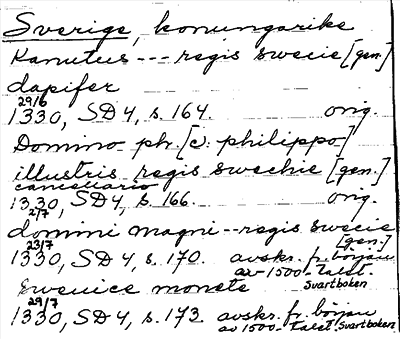 Sverige, konungarike
Kanutus --- regis swecie [gen.]
dapifer
29/6
1330, SD 4, s. 164. orig.
Domino ph. [ɔ: philippo]
illustris regis swechie [gen.]
cancellario
1330, SD 4, s. 166. orig.
2/7
domini magni -- regis swecie
[gen.]
23/7
1330, SD 4, s. 170. avskr. fr. början
av 1500-talet.
Svartboken
swenice monete
29/7
1330, SD 4, s. 173. avskr. fr. början
av 1500-talet Svartboken